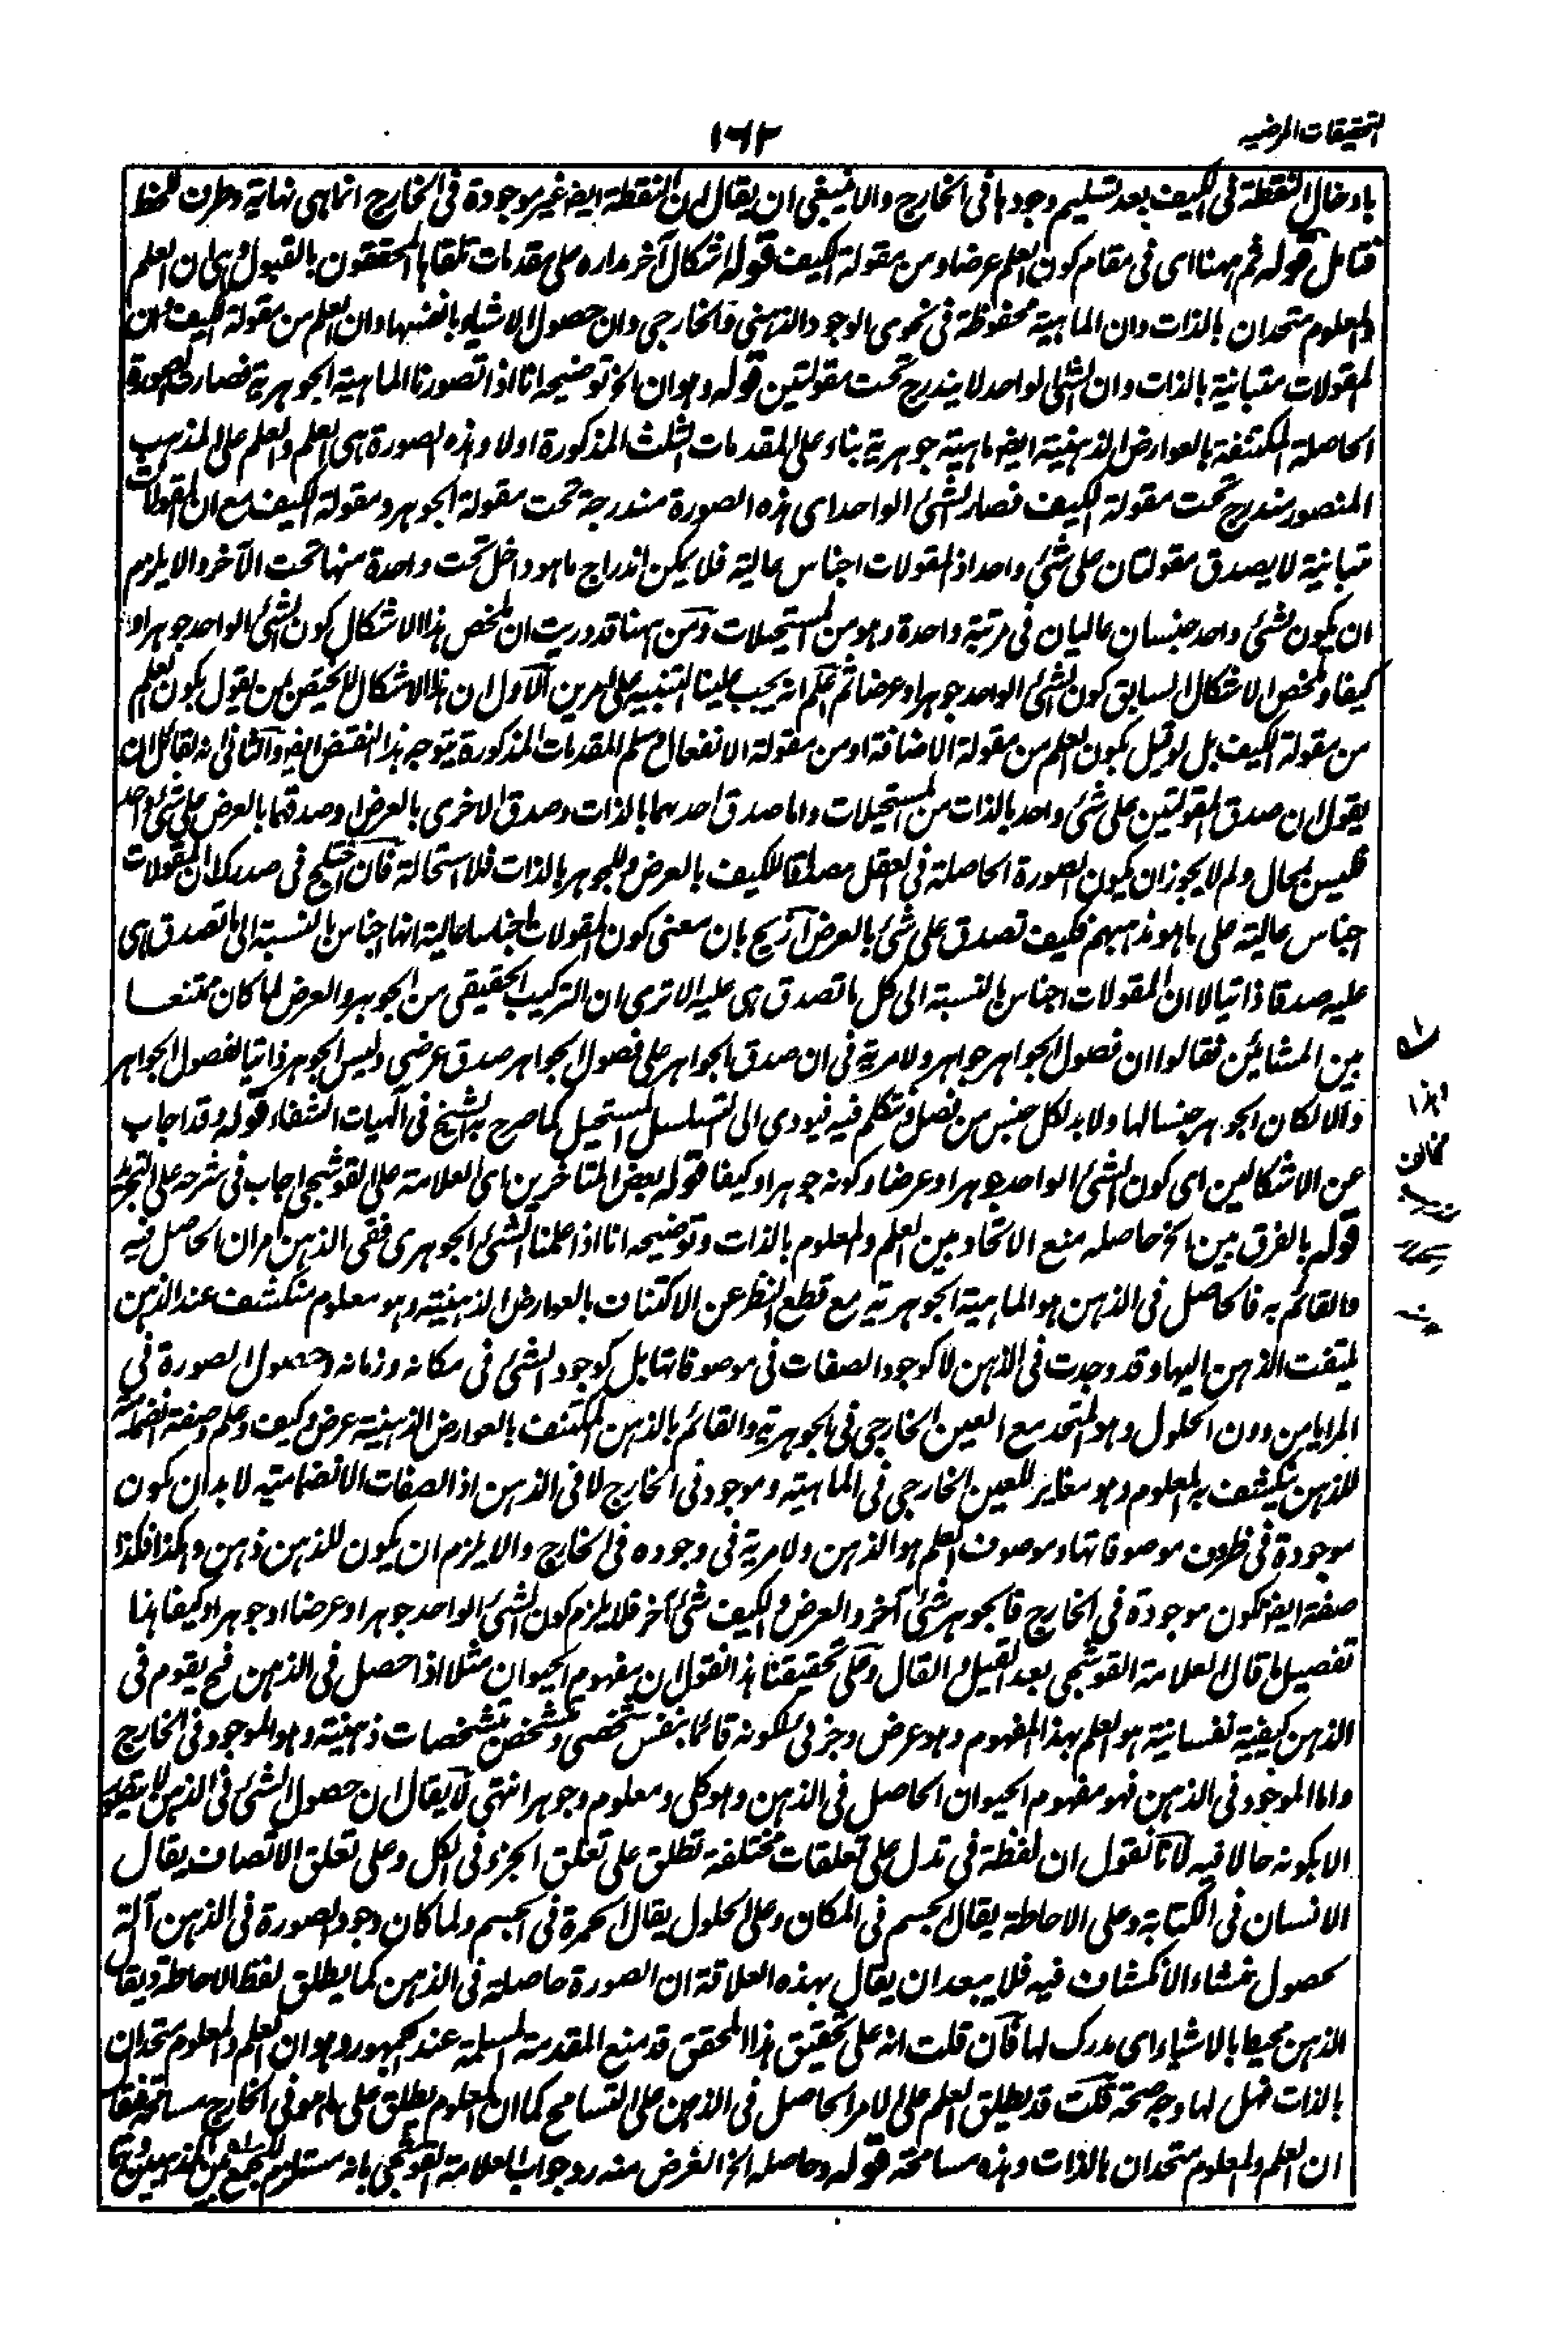 التحقيقات المرضيه
١٦٢
بادخال النقطة فى الكيف بعد تسليم وجودها فى الخارج والا فينبغى ان يقال ان النقطة ايضا غير موجودة فى الخارج انما هى نهاية وطرف للخط
فتامل قوله ثم ههنا اى فى مقام كون العلم عرضا ومن مقولة الكيف قوله اشكال آخر مداره على مقدمات تلقاها المحققون بالقبول وهى ان العلم
والمعلوم متحدان بالذات وان الماهية محفوظة فى نحوى الوجود الذهنى والخارجى وان حصول الاشياء بانفسها وان العلم من مقولة الكيف وان
المقولات متباينة بالذات وان الشئ الواحد لا يندرج تحت مقولتين قوله وهو ان الخ توضيحه انا اذا تصورنا الماهية الجوهرية فصارت الصورة
الحاصلة المكتنفة بالعوارض الذهنية ايضا ماهية جوهرية بناء على المقدمات الثلث المذكورة اولا وهذه الصورة هى العلم والعلم على المذهب
المنصور مندرج تحت مقولة الكيف فصار الشئ الواحد اى هذه الصورة مندرجة تحت مقولة الجوهر ومقولة الكيف مع ان المقولات
متباينة لا يصدق مقولتان على شئ واحد اذ المقولات اجناس عالية فلا يمكن اندراج ما هو داخل تحت واحدة منها تحت الآخر والا يلزم
ان يكون لشئ واحد جنسان عاليان فى مرتبة واحدة وهو من المستحيلات ومن ههنا قد دريت ان ملخص هذا الاشكال كون الشئ الواحد جوهرا و
كيفا وملخص الاشكال السابق كون الشئ الواحد جوهرا وعرضا ثم اعلم انه يجب علينا التنبيه على امرين الاول ان هذا الاشكال لا يختص بمن يقول بكون العلم
من مقولة الكيف بل لو قيل بكون العلم من مقولة الاضافة او من مقولة الانفعال وسلم المقدمات المذكورة يتوجه هذا النقض ايضا والثانى انه لقائل ان
يقول ان صدق المقولتين على شئ واحد بالذات من المستحيلات واما صدق احدهما بالذات وصدق الاخرى بالعرض او صدقهما بالعرض على شئ واحد
فليس بمحال ولم لا يجوز ان يكون الصورة الحاصلة فى العقل مصداقا للكيف بالعرض وللجوهر بالذات فلا استحالة فان اختلج فى صدرك ان المقولات
اجناس عالية على ما هو مذهبهم فكيف تصدق على شئ بالعرض ازيح بان معنى كون المقولات اجناسا عالية انها اجناس بالنسبة الى ما تصدق هى
عليه صدقا ذاتيا لا ان المقولات اجناس بالنسبة الى كل ما تصدق هى عليه الا ترى ان التركيب الحقيقى من الجوهر والعرض لما كان ممتنعا
بين المشائين فقالوا ان فصول الجواهر جواهر ولا مرية فى ان صدق الجواهر على فصول الجواهر صدق عرضى وليس الجوهر ذاتيا لفصول الجواهر
والا لكان الجوهر جنسا لها ولا بد لكل جنس من فصل فنتكلم فيه فيودى الى التسلسل المستحيل كما صرح به الشيخ فى آلهيات الشفاء قوله وقد اجاب
عن الاشكالين اى كون الشئ الواحد جوهرا وعرضا وكونه جوهرا وكيفا قوله بعض المتاخرين اى العلامة على القوشجى اجاب فى شرحه على التجريد
قوله بالفرق بين الخ حاصله منع الاتحاد بين العلم والمعلوم بالذات وتوضيحه انا اذا علمنا الشئ الجوهرى ففى الذهن امران الحاصل فيه
والقائم به فالحاصل فى الذهن هو الماهية الجوهرية مع قطع النظر عن الاكتناف بالعوارض الذهنية وهو معلوم منكشف عند الذهن
يلتفت الذهن اليها وقد وجدت فى الذهن لا كوجود الصفات فى موصوفاتها بل كوجود الشئ فى مكانه وزمانه وحصول الصورة فى
المرايا من دون الحلول وهو المتحد مع العين الخارجى فى الجوهرية والقائم بالذهن المكتنف بالعوارض الذهنية عرض وكيف وعلم وصفة انضمامية
للذهن ينكشف به المعلوم وهو مغاير للعين الخارجى فى الماهية وموجود فى الخارج لا فى الذهن اذ الصفات الانضمامية لا بد ان تكون
موجودة فى ظرف موصوفاتها وموصوف العلم هو الذهن ولا مرية فى وجوده فى الخارج والا يلزم ان يكون للذهن ذهن وهكذا فكذا
صفته ايضا تكون موجودة فى الخارج فالجوهر شئ آخر والعرض والكيف شئ آخر فلا يلزم كون الشئ الواحد جوهرا وعرضا او جوهرا وكيفا هذا
تفصيل ما قال العلامة القوشجى بعد القيل والقال وعلى تحقيقنا هذا نقول ان مفهوم الحيوان مثلا اذا حصل فى الذهن فح يقوم فى
الذهن كيفية نفسانية هو العلم بهذا المفهوم وهو عرض وجزئى لكونه قائما بنفس شخصى ومتشخص بتشخصات ذهنية وهو الموجود فى الخارج
واما الموجود فى الذهن فهو مفهوم الحيوان الحاصل فى الذهن وهو كلى ومعلوم وجوهر انتهى لا يقال ان حصول الشئ فى الذهن لا يتصور
الا بكونه حالا فيه لانا نقول ان لفظة فى تدل على تعلقات مختلفة تطلق على تعلق الجزء فى الكل وعلى تعلق الاتصاف يقال
الانسان فى الكتابة وعلى الاحاطة يقال الجسم فى المكان وعلى الحلول يقال الحمرة فى الجسم ولما كان وجود الصورة فى الذهن آلة
لحصول منشاء الانكشاف فيه فلا يبعد ان يقال بهذه العلاقة ان الصورة حاصلة فى الذهن كما يطلق لفظ الاحاطة ويقال
الذهن محيط بالاشياء اى مدرك لها فان قلت انه على تحقيق هذا المحقق قد منع المقدمة المسلمة عند الجمهور وهو ان العلم والمعلوم متحدان
بالذات فهل لها وجه صحة قلت قد يطلق العلم على الامر الحاصل فى الذهن على التسامح كما ان المعلوم يطلق على ما هو فى الخارج مسامحة فقالوا
ان العلم والمعلوم متحدان بالذات وهذه مسامحة قوله وحاصله الخ الغرض منه رد جواب العلامة القوشجى بانه مستلزم للجمع بين المذهبين